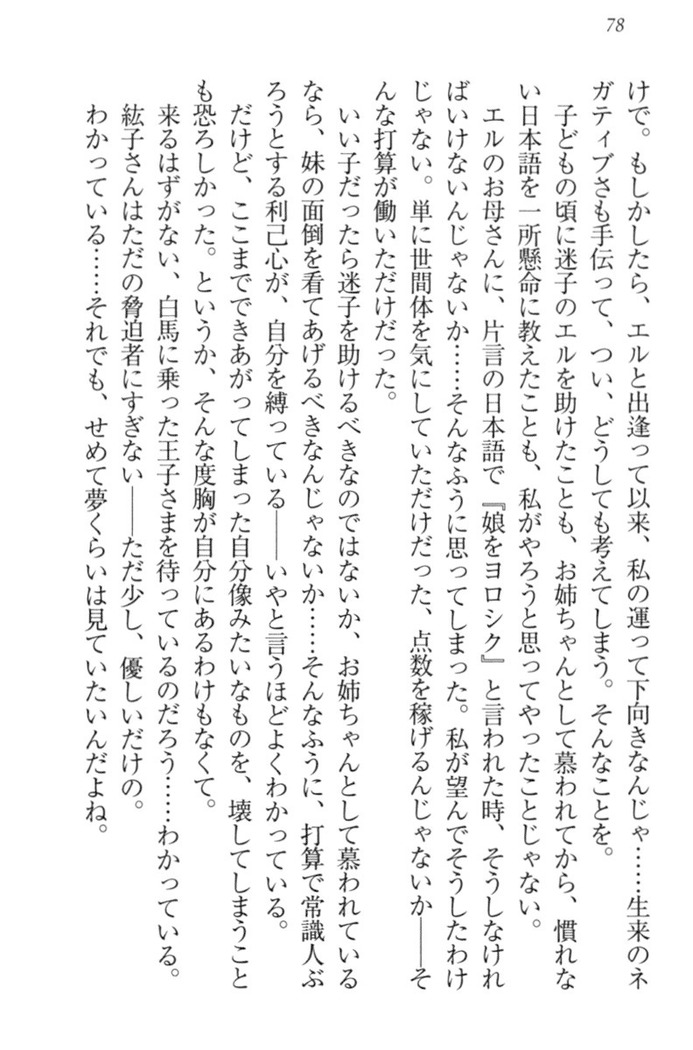 78
けで。もしかしたら、エルと出逢って以来、私の運って下向きなんじゃ……生来のネ
ガティブさも手伝って、つい、どうしても考えてしまう。そんなことを。
子どもの頃に迷子のエルを助けたことも、お姉ちゃんとして慕われてから、慣れな
い日本語を一所懸命に教えたことも、私がやろうと思ってやったことじゃない。
エルのお母さんに、片言の日本語で『娘をヨロシク』と言われた時、そうしなけれ
ばいけないんじゃないか……そんなふうに思ってしまった。私が望んでそうしたわけ
じゃない。単に世間体を気にしていただけだった、点数を稼げるんじゃないか――そ
んな打算が働いただけだった。
いい子だったら迷子を助けるべきなのではないか、お姉ちゃんとして慕われている
なら、妹の面倒を看てあげるべきなんじゃないか……そんなふうに、打算で常識人ぶ
ろうとする利己心が、自分を縛っている――いやと言うほどよくわかっている。
だけど、ここまでできあがってしまった自分像みたいなものを、壊してしまうこと
も恐ろしかった。というか、そんな度胸が自分にあるわけもなくて。
来るはずがない、白馬に乗った王子さまを待っているのだろう……わかっている。
紘子さんはただの脅迫者にすぎない――ただ少し、優しいだけの。
わかっている……それでも、せめて夢くらいは見ていたいんだよね。